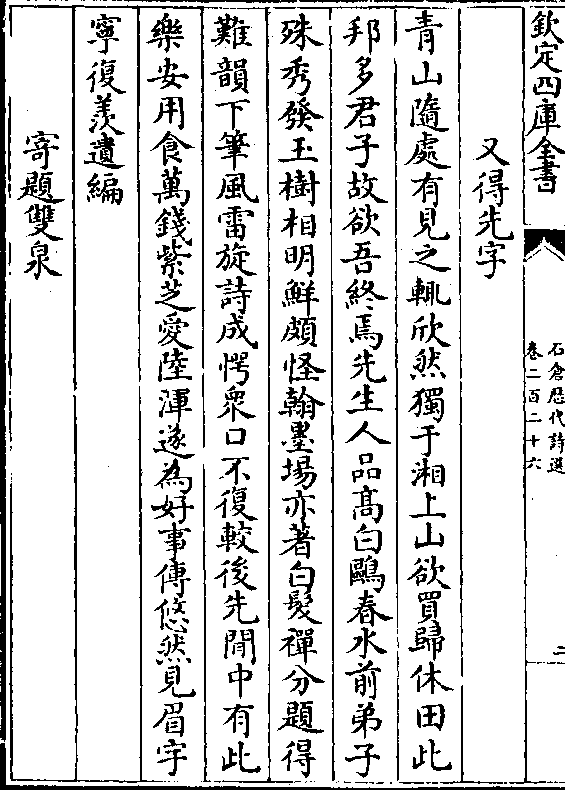 欽定四庫全書
石倉歴代詩選
卷二百二十六
二
又得先字
青山隨處有見之輒欣然獨于湘上山欲買歸休田此
邦多君子故欲吾終焉先生人品髙白鷗春水前弟子
殊秀發玉樹相明鮮頗怪翰墨場亦著白髮禪分題得
難韻下筆風雷旋詩成愕衆口不復較後先閒中有此
樂安用食萬錢紫芝愛陸渾遂為好事傳悠然見眉宇
寧復羨遺編
寄題雙泉